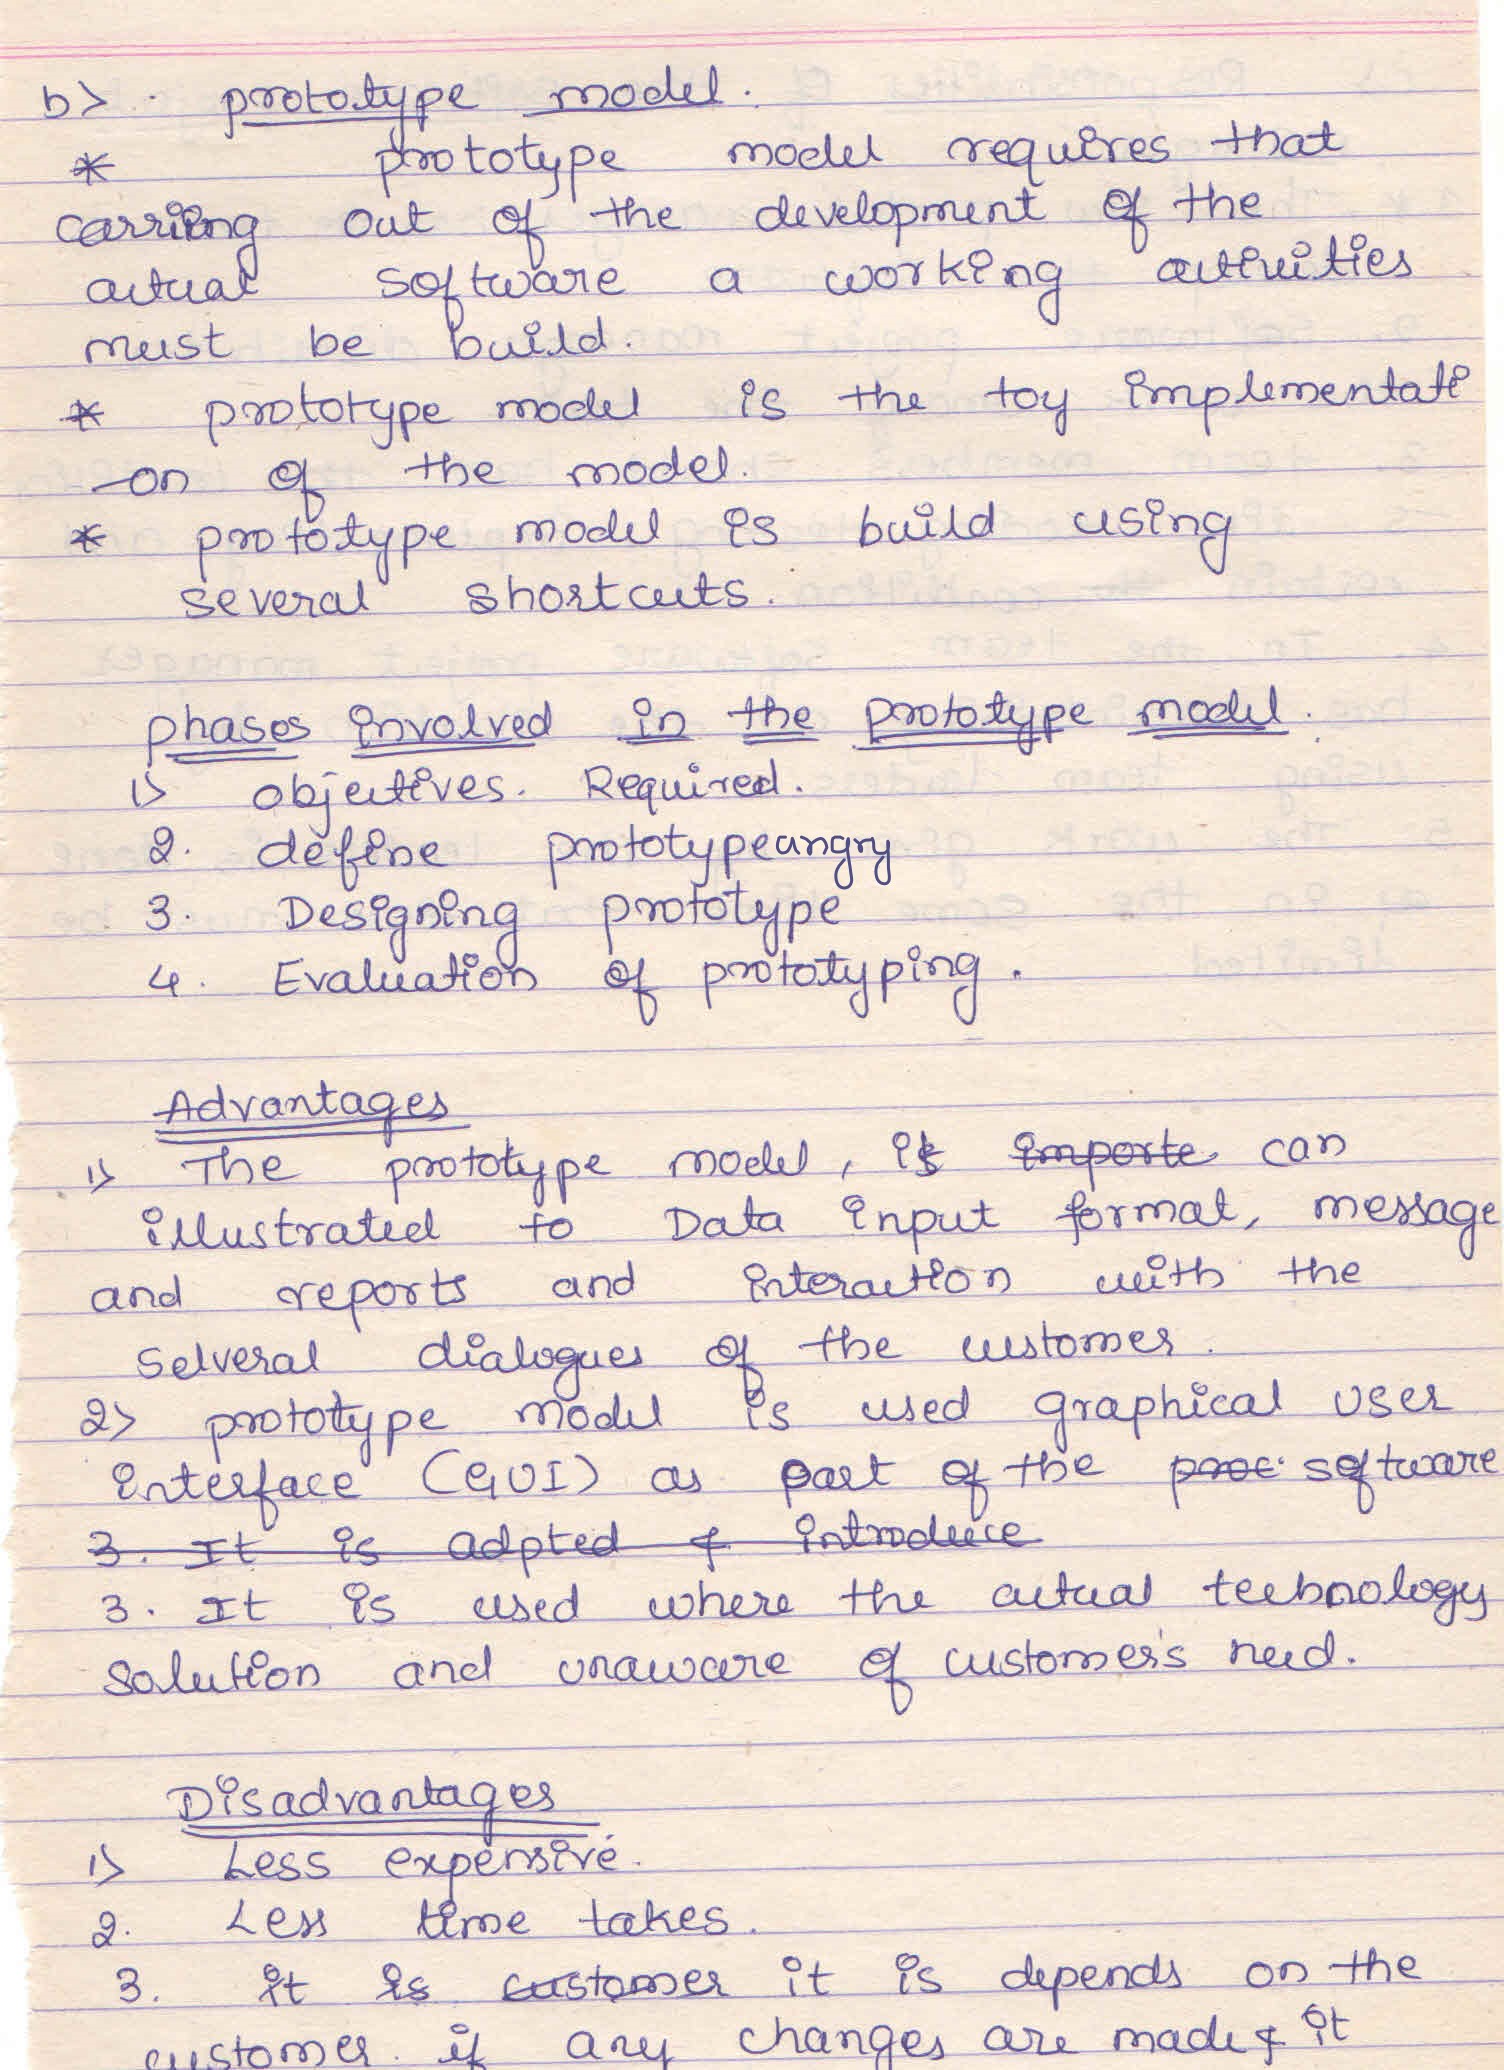 b> . prototype model.
* prototype model requires that
carriing out of the development of the
actual software a working activities
must be build.
* prototype model is the toy implementati
-on of the model.
* prototype model is build using
several shortcuts.
phases involved in the prototype model.
1> objectives. Required.
2. define prototypeangry
3. Designing prototype
4. Evaluation of prototyping.
Advantages
1> The prototype model, is importe can
illustrated to Data input format, message
and reports and interaction with the
selveral dialogues of the customer.
2> prototype model is used graphical user
interface (GUI) as part of the proc. software
3. It is adpted & introduce
3. It is used where the actual technology
solution and unaware of customer's need.
Disadvantages
1> Less expensive.
2. Less time takes.
3. it is customer it is depends on the
customer. if any changes are made & it